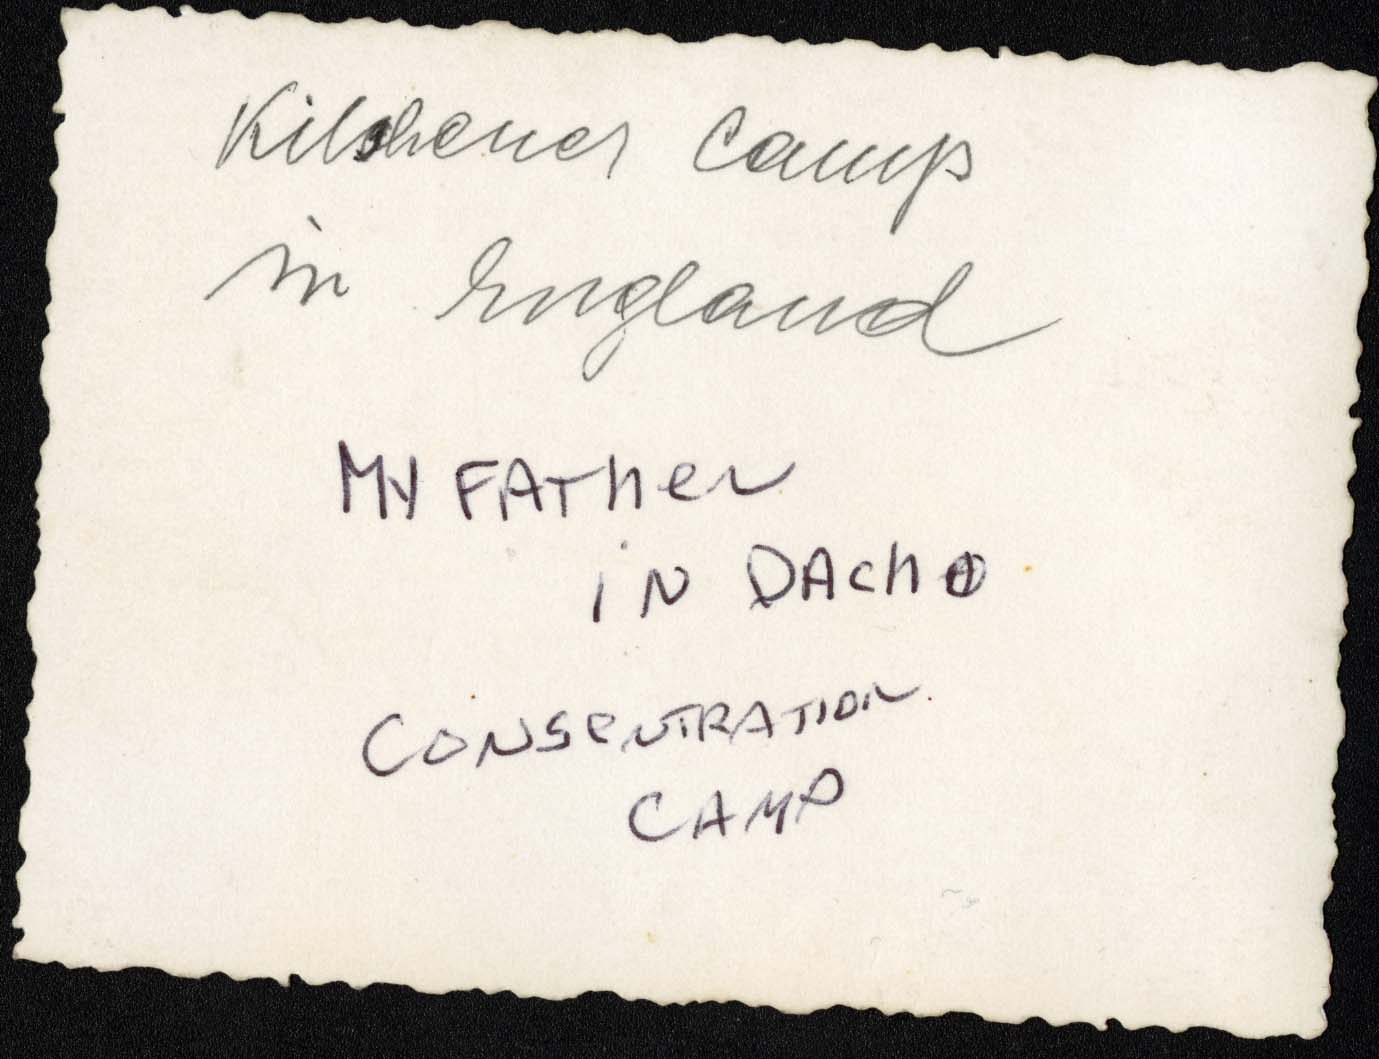 Kitchener Camp
in England
MY FATher
iN DAChO
CONSeNTRATION
CAMP